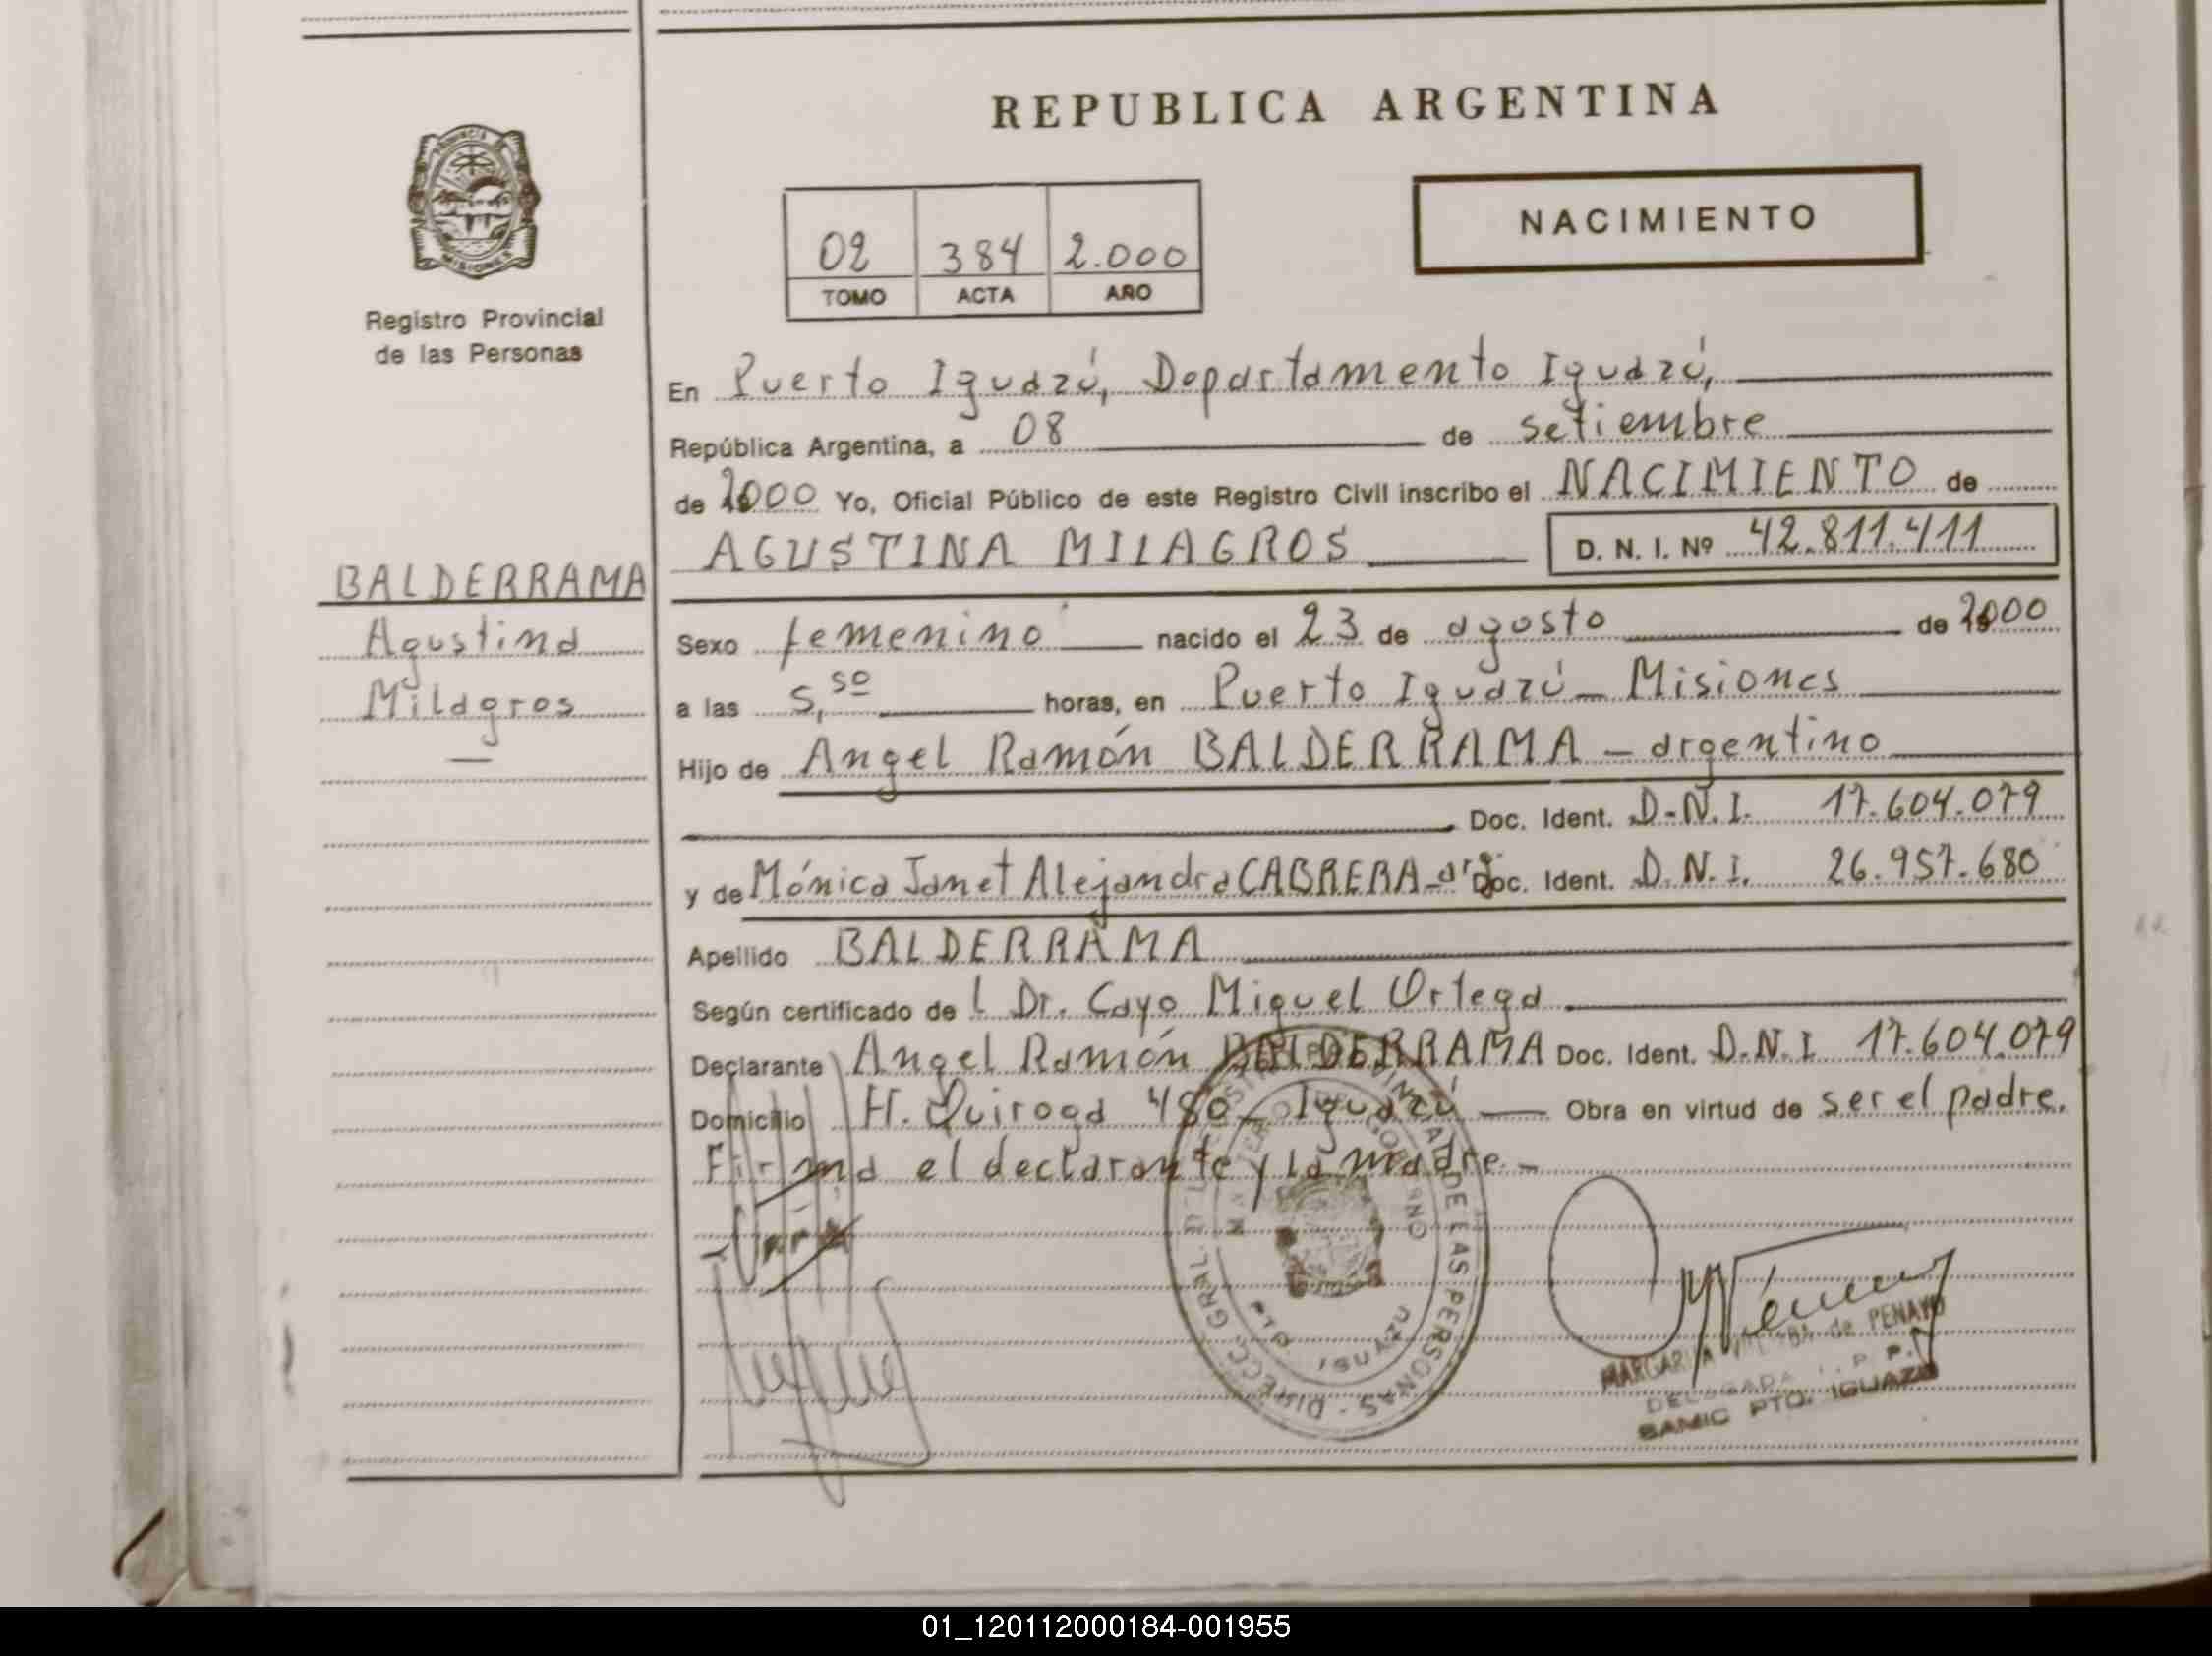 REPUBLICA ARGENTINA
PROVINCIA
MISIONES
Registro Provincial
de las Personas
NACIMIENTO
02 384 2.000
TOMO ACTA AÑO
En Puerto Iguazú, Departamento Iguazú,
República Argentina, a 08 de setiembre
de 2000 Yo, Oficial Público de este Registro Civil inscribo el NACIMIENTO de
AGUSTINA MILAGROS D. N. I. Nº 42.811.411
BALDERRAMA
Agustina
Milagros
Sexo femenino nacido el 23 de agosto de 2000
a las 5,50 horas, en Puerto Iguazú - Misiones
Hijo de Angel Ramón BALDERRAMA - argentino
Doc. Ident. D.N.I. 17.604.079
y de Mónica Janet Alejandra CABRERA - arg. Doc. Ident. D.N.I. 26.957.680
Apellido BALDERRAMA
Según certificado de l Dr. Cayo Miguel Ortega
Declarante Angel Ramón BALDERRAMA Doc. Ident. D.N.I. 17.604.079
Domicilio H. Quiroga 480 - Iguazú Obra en virtud de ser el padre.
Firma el declarante y la madre. -
DE LAS PERSONAS - DIRECC. GRAL. DEL
IGUAZU
MARGARITA de PENAYO
DELEGADA P. P.
SAMIC PTO. IGUAZU
01_120112000184-001955